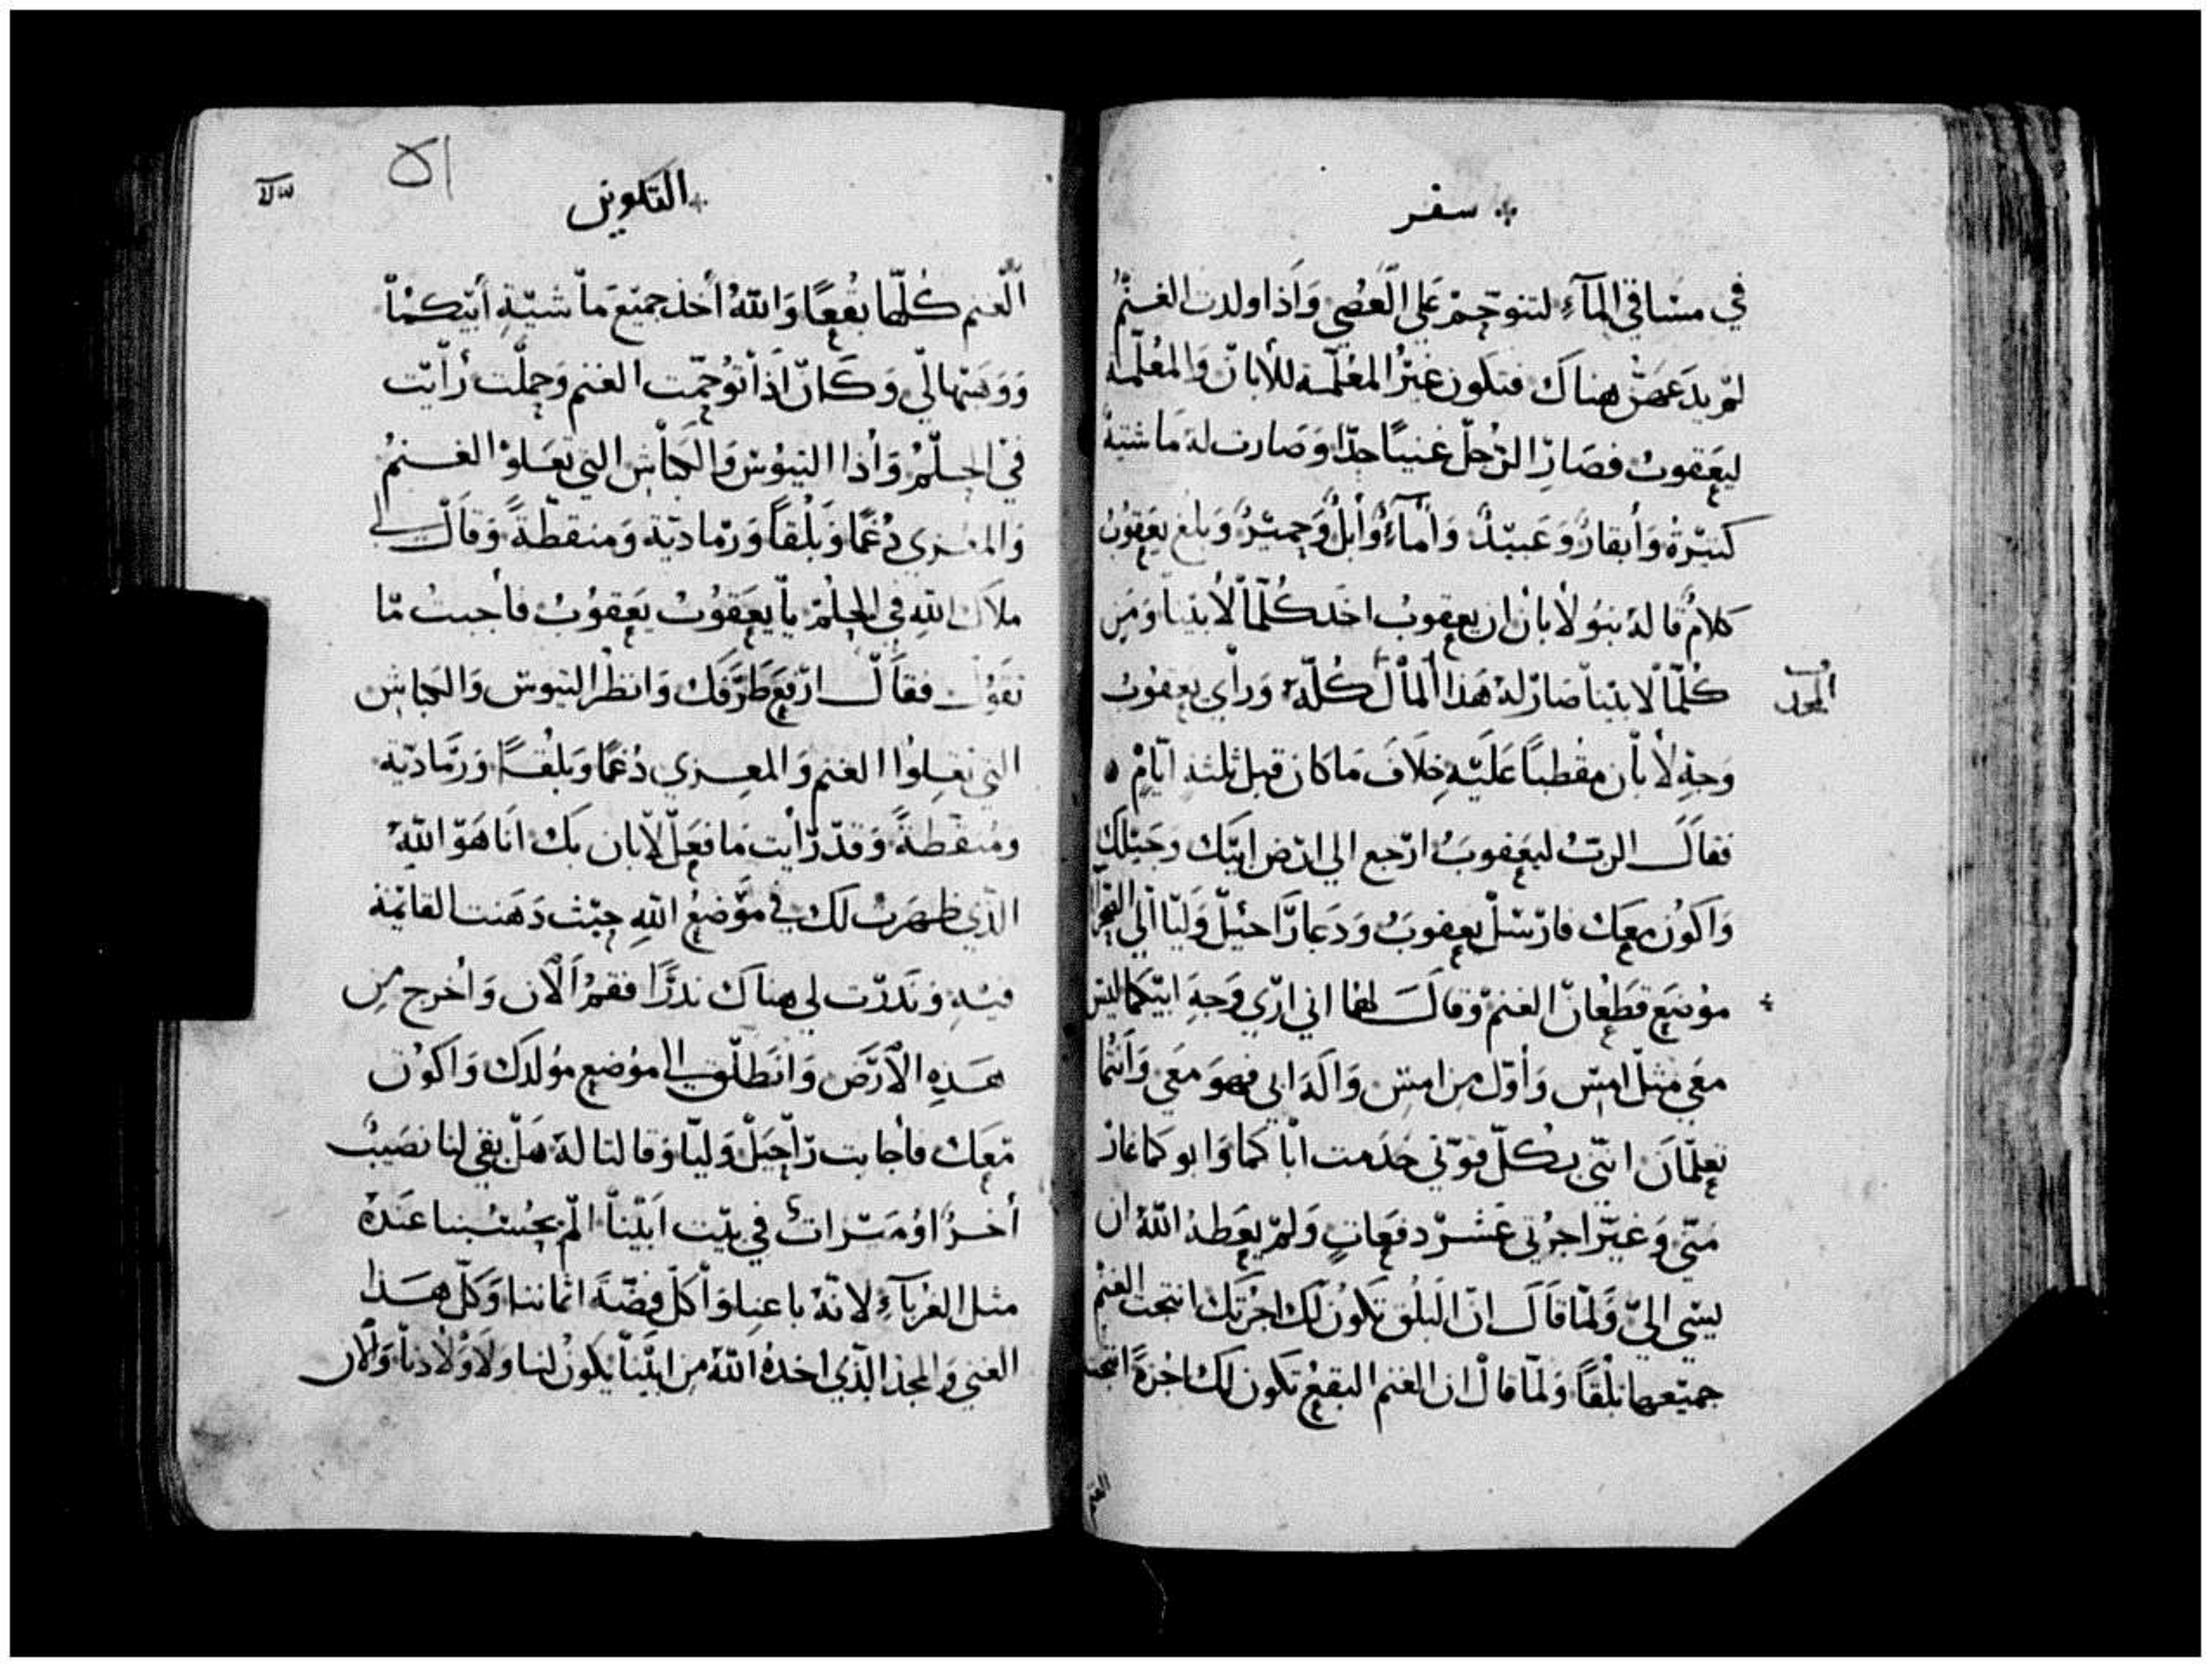 سفر
في مساقي المآءِ لتتوحم علي العصي وَاذا ولدت الغنم
لم يدعهن هناك فتكون غير المعلمة للابان وَالمعلمة
ليعقوب فصار الرجل غنيًا جدًا وَصارت له ماشية
كثيرة وَأبقار وَعبيد وَأمآء وَأبل وَحمير وَبلغ يعقوب
كلام قاله بنو لأبان ان يعقوب اخد كلما لأبينا وَمن
كلما لابينا صار له هذا المال كله وَرأي يعقوب
المجد
وَجه لأبان مقطبًا عليه خلاف ما كان قبل ثلثه ايام
فقال الرب ليعقوب ارجع الي ارض ابيك وجيلك
وَاكون معك فارسل يعقوب وَدعا راحيل وَليا الي
موضع قطعان الغنم وَقال لهما اني اري وَجه ابيكما ليس
معي مثل امس وَأول من امس وَاله ابي فهو معي وَأنتما
تعلمان انني بكل قوتي خدمت اباكما وَابوكما غار
مني وَغير اجرتي عشر دفعات وَلم يعطه الله ان
يسي الي وَلما قال ان البلق تكون لك اجرتك انتجت الغنم
جميعها بلقًا وَلما قال ان الغنم البقع تكون لك اجرة انتجت
الغنم
التكوين
٥١
الغنم كلها بقعًا وَالله أخذ جميع ماشية أبيكما
وَوَهبها لي وَكان اذا توحمت الغنم وَحملت رأيت
في الحلم وَأذا التيوس وَالكباش التي تعلوا الغنم
وَالمعزي دُغمًا وَبلقًا وَرمادية وَمنقطة وَقال لي
ملاك الله في الحلم يا يعقوب يعقوب فأجبت ما
تقول فقال ارفع طرفك وَانظر التيوس وَالكباش
التي تعلوا الغنم وَالمعزي دُغمًا وبلقًا وَرمادية
ومنقطة وَقد رأيت ما فعل لابان بك انا هو الله
الذي ظهرت لك في موضع الله حيث دهنت القايمة
فيه وَندرت لي هناك ندرًا فقم الآن وَاخرج من
هذه الارض وَانطلق الي موضع مولدك وَاكون
معك فأجابت راحيل وَليا وَقالتا له هل بقي لنا نصيب
أخر او ميراث في بيت ابينا الم يحسبنا عنده
مثل الغربآءِ لانه باعنا وَأكل فضة اثماننا وَكل هذا
الغني وَالمجد الذي اخده الله من ابينا يكون لنا وَلاوْلادنا وَالان